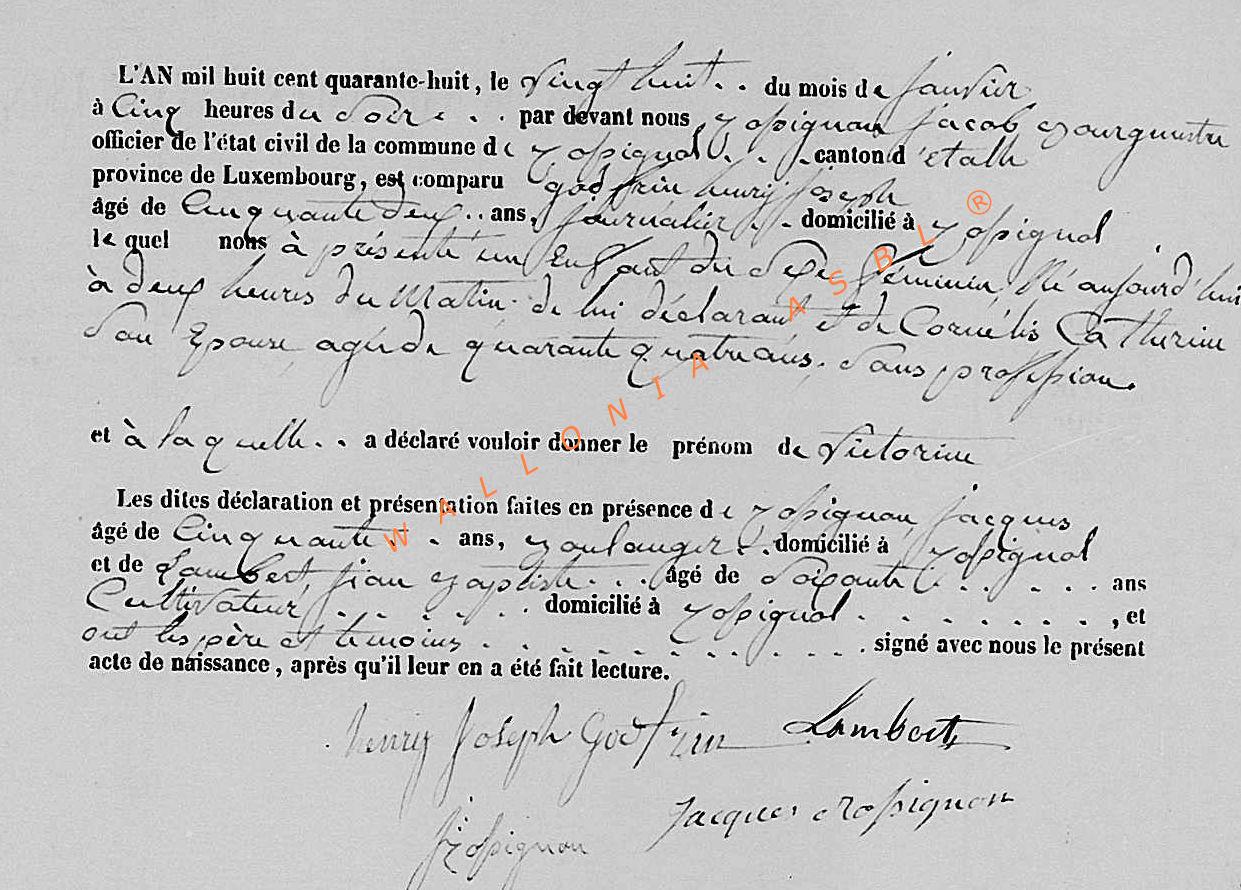 L'AN mil huit cent quarante-huit, le Vingt huit . . du mois de janvier
à Cinq heures du Soir . . par devant nous Rossignon Jacob Bourgmestre
officier de l'état civil de la commune de Rossignol . . . canton d'étalle
province de Luxembourg, est comparu godfrin henry joseph
âgé de Cinquante deux . . ans, journalier . . domicilié à Rossignol
le quel nous à présenté un Enfant du Sexe féminin, Né aujourd'hui
à deux heures du Matin de lui déclarant et de Cornélis Catherine
Son Epouse, agée de quarante quatre ans, Sans profession.
et à laquelle . . a déclaré vouloir donner le prénom de Victorine
Les dites déclaration et présentation faites en présence de Rossignon jacques
âgé de Cinquante . . ans, Boulanger . . domicilié à Rossignol
et de Lambert jean Baptiste . . . âgé de Soixante . . . . . . ans
Cultivateur . . . . . . domicilié à Rossignol . . . . . . . . , et
ont les père et temoins . . . . . . . . . . . signé avec nous le présent
acte de naissance, après qu'il leur en a été fait lecture.
henry Joseph Godfrin Lambert
J Rossignon Jacques Rossignon
WALLONIA ASBL ®